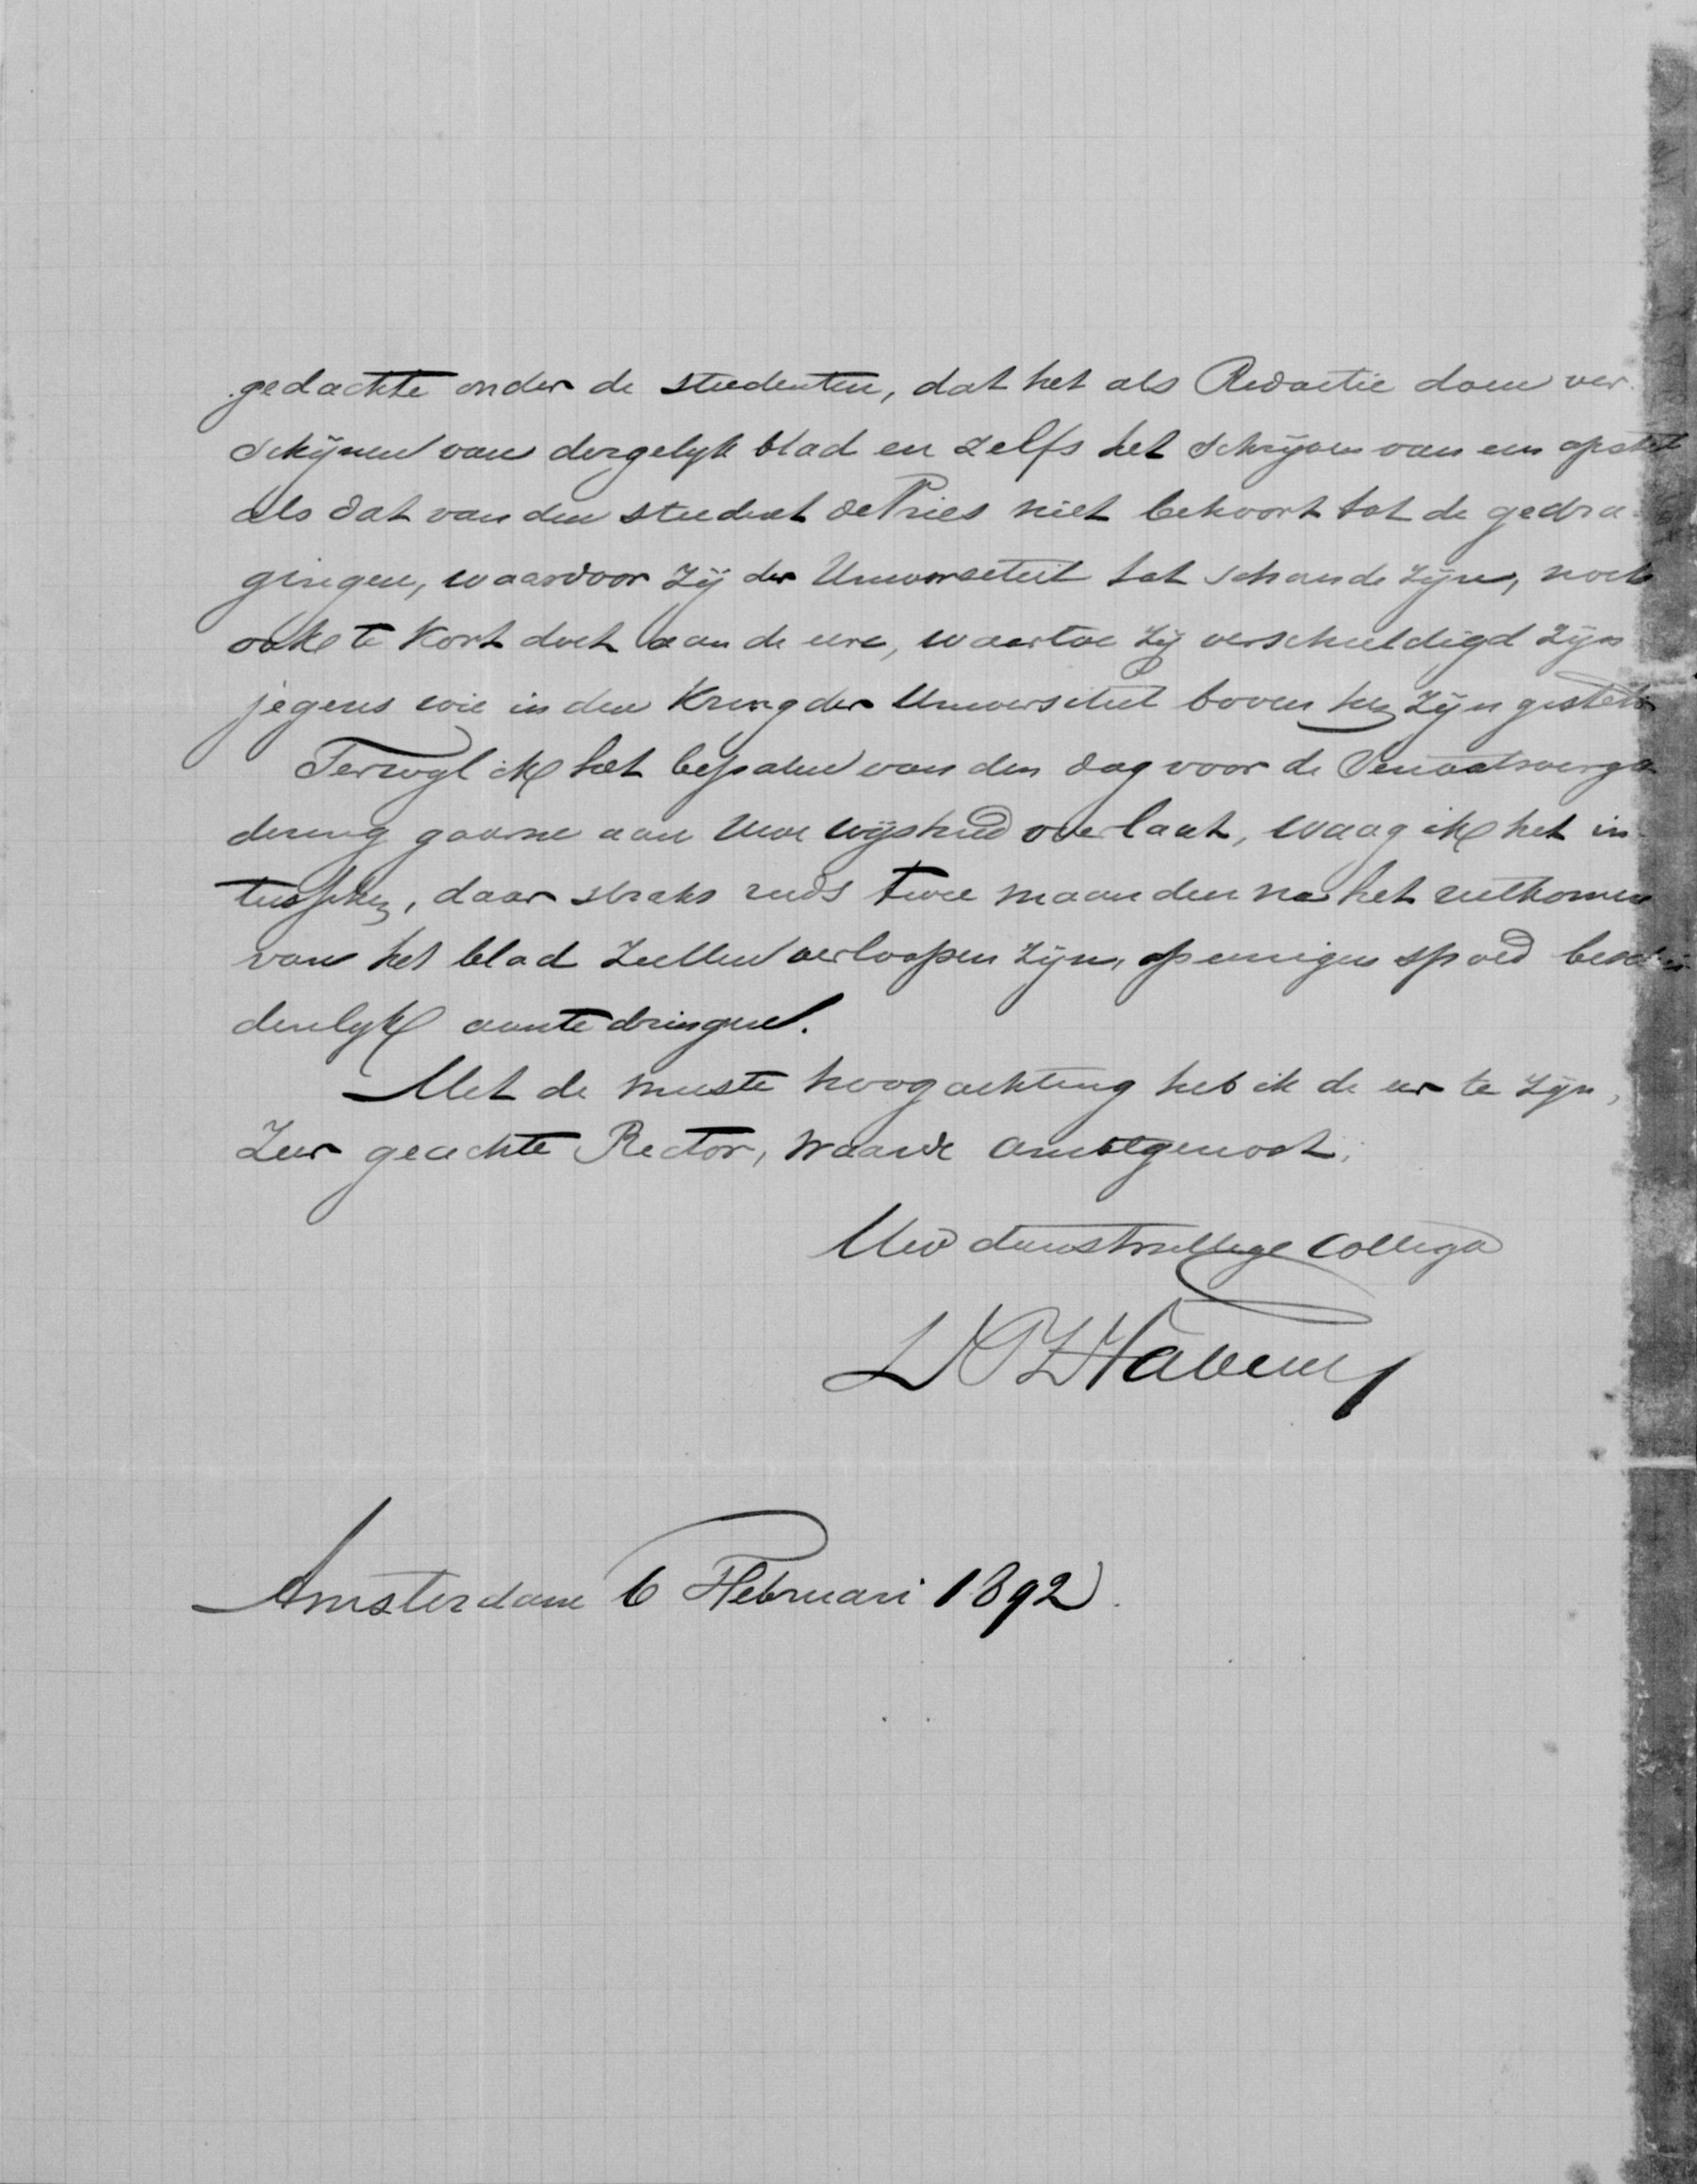 gedachte onder de studenten, dat het als Redactie doen ver-
schijnen van dergelijk blad en zelfs het schrijven van een opstel
als dat van den student de Vries niet behoort tot de gedra-
gingen, waardoor zij der Universiteit tot schande zijn, noch
ook te kort doet aan de eere, waartoe zij verschuldigd zijn
jegens wie in den Kring der Universiteit boven hen zijn gesteld
Terwijl ik het bepalen van den dag voor de Senaatsverga-
dering gaarne aan Uwe wijsheid overlaat, waag ik het in-
tusschen, daar straks reeds twee maanden na het uitkomen
van het blad zullen verloopen zijn, op eenigen spoed beschei-
denlijk aan te dringen.
Met de meeste hoogachting heb ik de eer te zijn,
Zeer geachte Rector, waarde ambtgenoot,
Uw dienstwillige Collega
Amsterdam 6 Februari 1892.